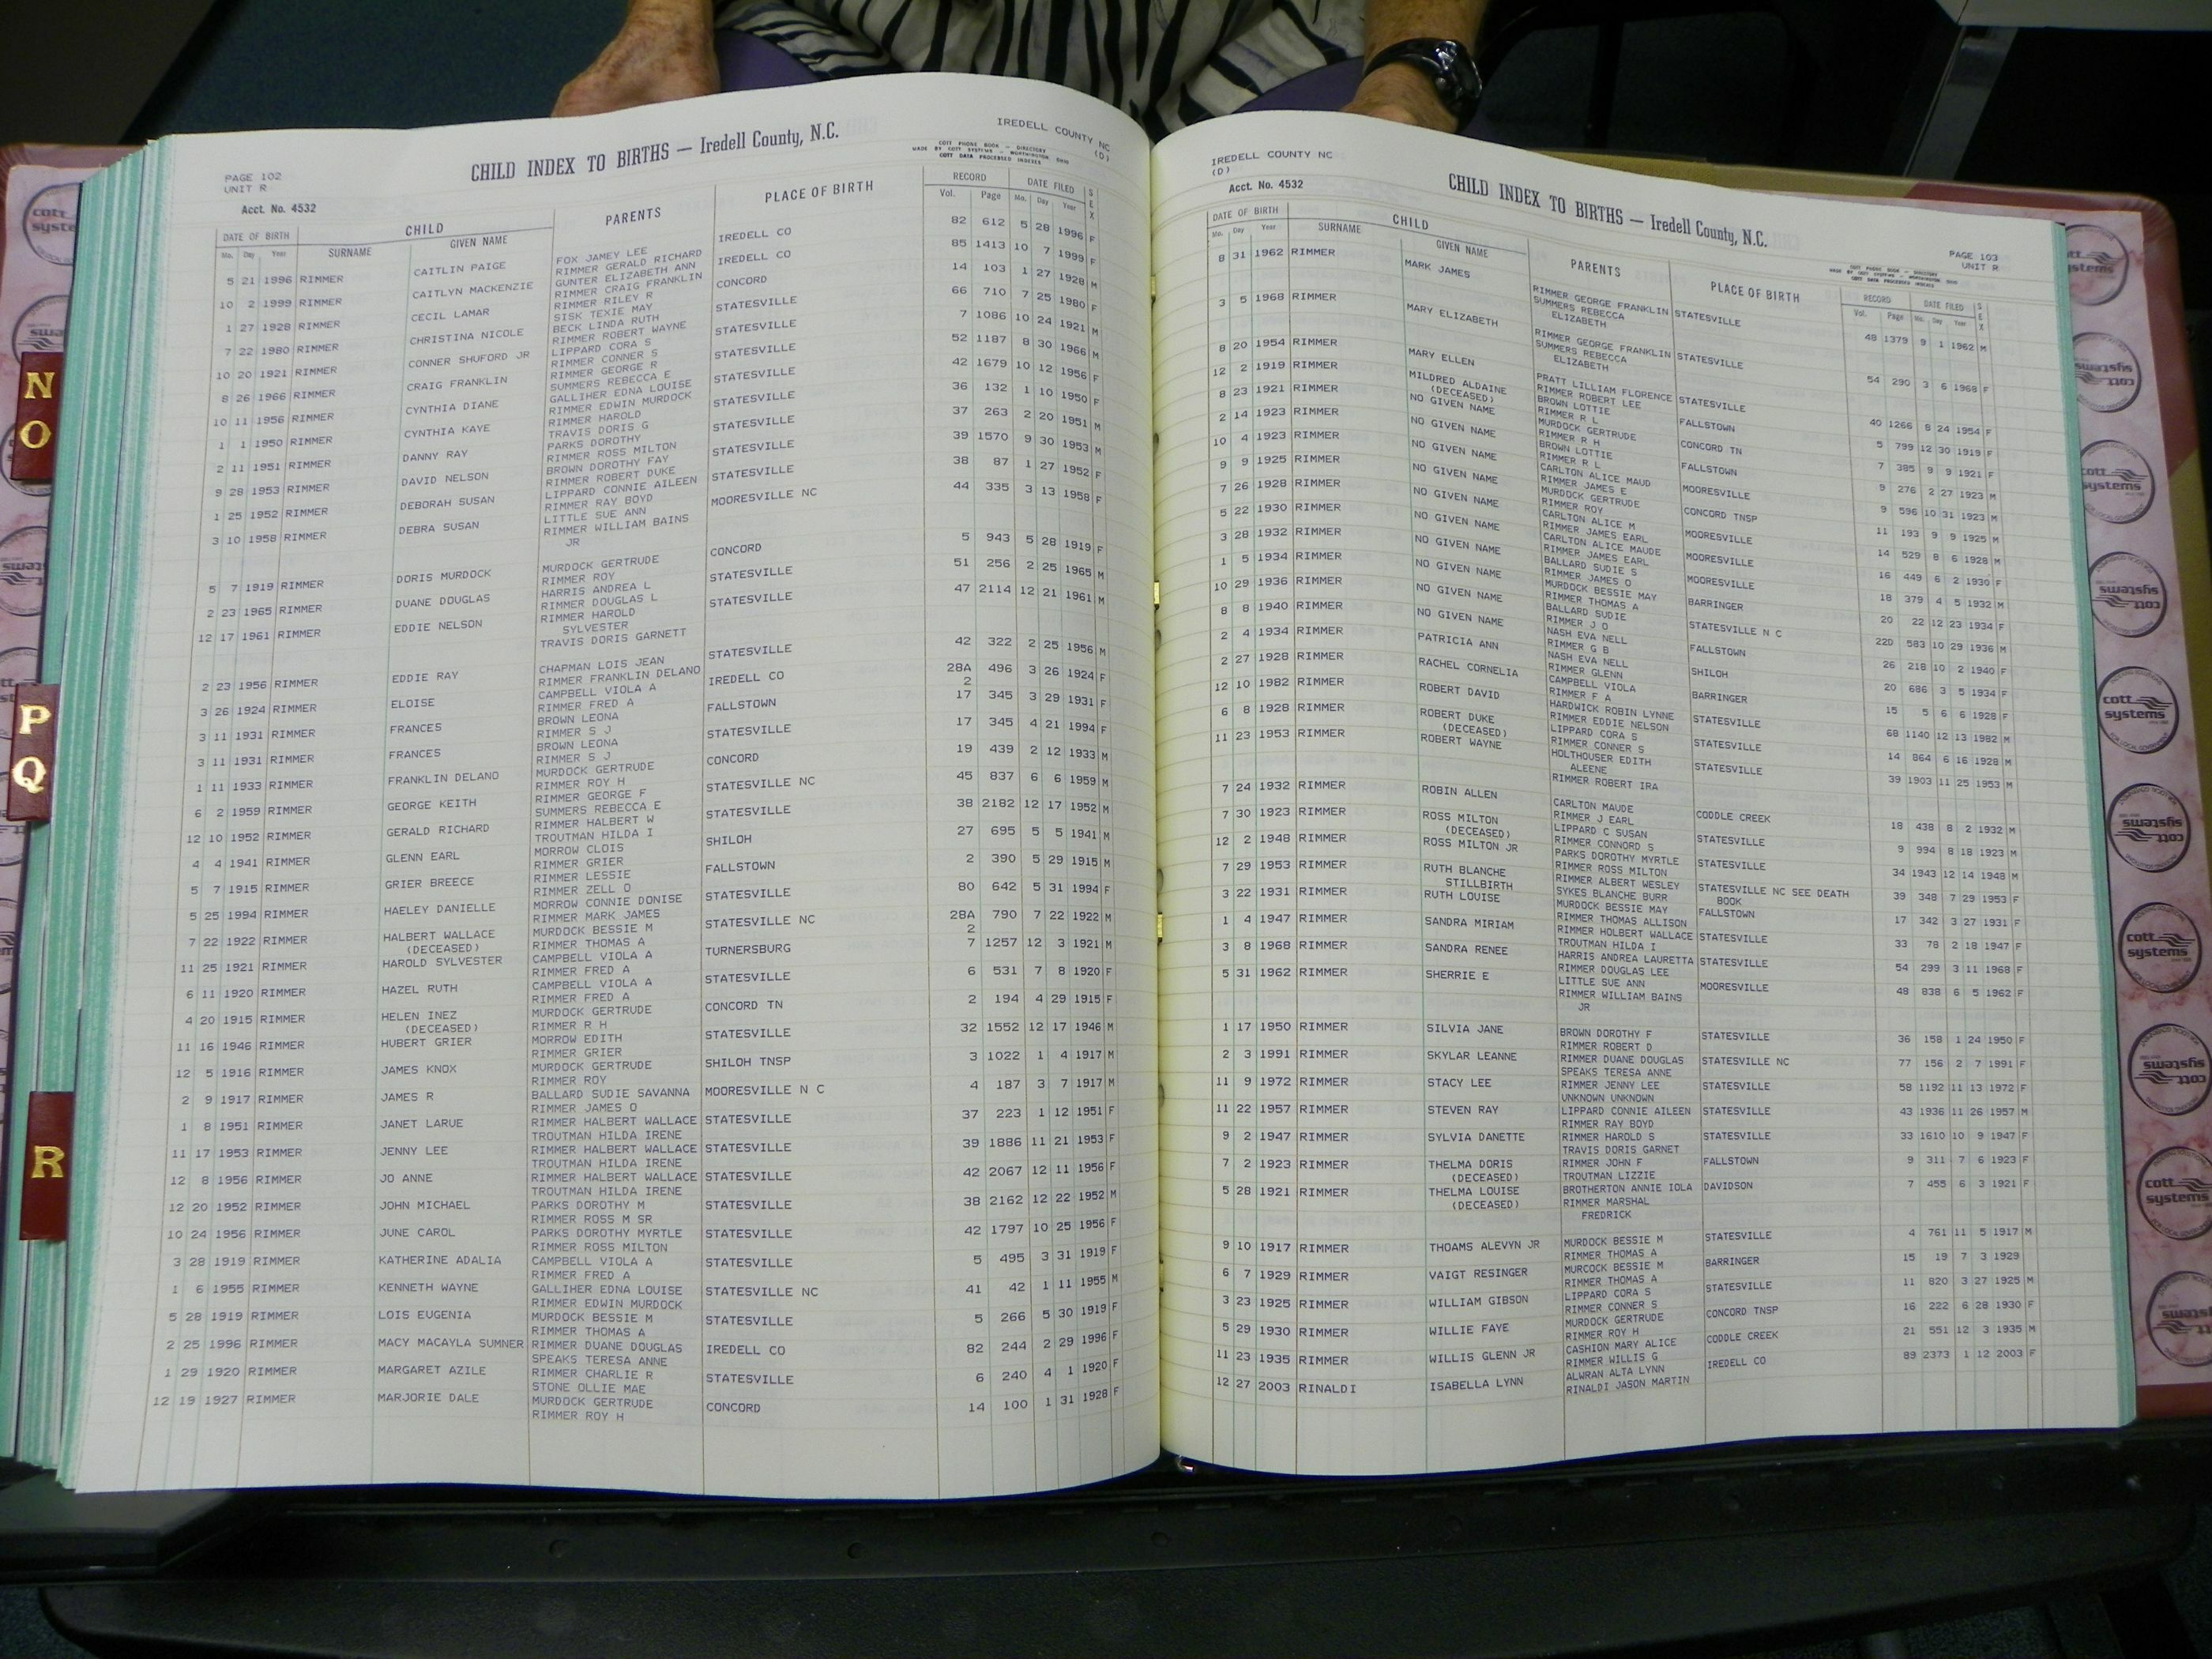 PAGE 102
UNIT R
Acct. No. 4532
CHILD INDEX TO BIRTHS — Iredell County, N.C.
IREDELL COUNTY NC
(D)
COTT PHONE BOOK — DIRECTORY
MADE BY COTT SYSTEMS — WORTHINGTON, OHIO
COTT DATA PROCESSED INDEXES
DATE OF BIRTH CHILD PARENTS PLACE OF BIRTH RECORD DATE FILED SEX
Mo. Day Year SURNAME GIVEN NAME Vol. Page Mo. Day Year
5 21 1996 RIMMER CAITLIN PAIGE FOX JAMEY LEE IREDELL CO 82 612 5 28 1996 F
RIMMER GERALD RICHARD
10 2 1999 RIMMER CAITLYN MACKENZIE GUNTER ELIZABETH ANN IREDELL CO 85 1413 10 7 1999 F
RIMMER CRAIG FRANKLIN
1 27 1928 RIMMER CECIL LAMAR RIMMER RILEY R CONCORD 14 103 1 27 1928 M
SISK TEXIE MAY
7 22 1980 RIMMER CHRISTINA NICOLE BECK LINDA RUTH STATESVILLE 66 710 7 25 1980 F
RIMMER ROBERT WAYNE
10 20 1921 RIMMER CONNER SHUFORD JR LIPPARD CORA S STATESVILLE 7 1086 10 24 1921 M
RIMMER CONNER S
8 26 1966 RIMMER CRAIG FRANKLIN RIMMER GEORGE R STATESVILLE 52 1187 8 30 1966 M
SUMMERS REBECCA E
10 11 1956 RIMMER CYNTHIA DIANE GALLIHER EDNA LOUISE STATESVILLE 42 1679 10 12 1956 F
RIMMER EDWIN MURDOCK
1 1 1950 RIMMER CYNTHIA KAYE RIMMER HAROLD STATESVILLE 36 132 1 10 1950 F
TRAVIS DORIS G
2 11 1951 RIMMER DANNY RAY PARKS DOROTHY STATESVILLE 37 263 2 20 1951 M
RIMMER ROSS MILTON
9 28 1953 RIMMER DAVID NELSON BROWN DOROTHY FAY STATESVILLE 39 1570 9 30 1953 M
RIMMER ROBERT DUKE
1 25 1952 RIMMER DEBORAH SUSAN LIPPARD CONNIE AILEEN STATESVILLE 38 87 1 27 1952 F
RIMMER RAY BOYD
3 10 1958 RIMMER DEBRA SUSAN LITTLE SUE ANN MOORESVILLE NC 44 335 3 13 1958 F
RIMMER WILLIAM BAINS
JR
5 7 1919 RIMMER DORIS MURDOCK MURDOCK GERTRUDE CONCORD 5 943 5 28 1919 F
RIMMER ROY
2 23 1965 RIMMER DUANE DOUGLAS HARRIS ANDREA L STATESVILLE 51 256 2 25 1965 M
RIMMER DOUGLAS L
12 17 1961 RIMMER EDDIE NELSON RIMMER HAROLD STATESVILLE 47 2114 12 21 1961 M
SYLVESTER
TRAVIS DORIS GARNETT
2 23 1956 RIMMER EDDIE RAY CHAPMAN LOIS JEAN STATESVILLE 42 322 2 25 1956 M
RIMMER FRANKLIN DELANO
3 26 1924 RIMMER ELOISE CAMPBELL VIOLA A IREDELL CO 28A 496 3 26 1924 F
RIMMER FRED A 2
3 11 1931 RIMMER FRANCES BROWN LEONA FALLSTOWN 17 345 3 29 1931 F
RIMMER S J
3 11 1931 RIMMER FRANCES BROWN LEONA STATESVILLE 17 345 4 21 1994 F
RIMMER S J
1 11 1933 RIMMER FRANKLIN DELANO MURDOCK GERTRUDE CONCORD 19 439 2 12 1933 M
RIMMER ROY H
6 2 1959 RIMMER GEORGE KEITH RIMMER GEORGE F STATESVILLE NC 45 837 6 6 1959 M
SUMMERS REBECCA E
12 10 1952 RIMMER GERALD RICHARD RIMMER HALBERT W STATESVILLE 38 2182 12 17 1952 M
TROUTMAN HILDA I
4 4 1941 RIMMER GLENN EARL MORROW CLOIS SHILOH 27 695 5 5 1941 M
RIMMER GRIER
5 7 1915 RIMMER GRIER BREECE RIMMER LESSIE FALLSTOWN 2 390 5 29 1915 M
RIMMER ZELL O
5 25 1994 RIMMER HAELEY DANIELLE MORROW CONNIE DONISE STATESVILLE 80 642 5 31 1994 F
RIMMER MARK JAMES
7 22 1922 RIMMER HALBERT WALLACE MURDOCK BESSIE M STATESVILLE NC 28A 790 7 22 1922 M
(DECEASED) RIMMER THOMAS A 2
11 25 1921 RIMMER HAROLD SYLVESTER CAMPBELL VIOLA A TURNERSBURG 7 1257 12 3 1921 M
RIMMER FRED A
6 11 1920 RIMMER HAZEL RUTH CAMPBELL VIOLA A STATESVILLE 6 531 7 8 1920 F
RIMMER FRED A
4 20 1915 RIMMER HELEN INEZ MURDOCK GERTRUDE CONCORD TN 2 194 4 29 1915 F
(DECEASED) RIMMER R H
11 16 1946 RIMMER HUBERT GRIER MORROW EDITH STATESVILLE 32 1552 12 17 1946 M
RIMMER GRIER
12 5 1916 RIMMER JAMES KNOX MURDOCK GERTRUDE SHILOH TNSP 3 1022 1 4 1917 M
RIMMER ROY
2 9 1917 RIMMER JAMES R BALLARD SUDIE SAVANNA MOORESVILLE N C 4 187 3 7 1917 M
RIMMER JAMES O
1 8 1951 RIMMER JANET LARUE RIMMER HALBERT WALLACE STATESVILLE 37 223 1 12 1951 F
TROUTMAN HILDA IRENE
11 17 1953 RIMMER JENNY LEE RIMMER HALBERT WALLACE STATESVILLE 39 1886 11 21 1953 F
TROUTMAN HILDA IRENE
12 8 1956 RIMMER JO ANNE RIMMER HALBERT WALLACE STATESVILLE 42 2067 12 11 1956 F
TROUTMAN HILDA IRENE
12 20 1952 RIMMER JOHN MICHAEL PARKS DOROTHY M STATESVILLE 38 2162 12 22 1952 M
RIMMER ROSS M SR
10 24 1956 RIMMER JUNE CAROL PARKS DOROTHY MYRTLE STATESVILLE 42 1797 10 25 1956 F
RIMMER ROSS MILTON
3 28 1919 RIMMER KATHERINE ADALIA CAMPBELL VIOLA A STATESVILLE 5 495 3 31 1919 F
RIMMER FRED A
1 6 1955 RIMMER KENNETH WAYNE GALLIHER EDNA LOUISE STATESVILLE NC 41 42 1 11 1955 M
RIMMER EDWIN MURDOCK
5 28 1919 RIMMER LOIS EUGENIA MURDOCK BESSIE M STATESVILLE 5 266 5 30 1919 F
RIMMER THOMAS A
2 25 1996 RIMMER MACY MACAYLA SUMNER RIMMER DUANE DOUGLAS IREDELL CO 82 244 2 29 1996 F
SPEAKS TERESA ANNE
1 29 1920 RIMMER MARGARET AZILE RIMMER CHARLIE R STATESVILLE 6 240 4 1 1920 F
STONE OLLIE MAE
12 19 1927 RIMMER MARJORIE DALE MURDOCK GERTRUDE CONCORD 14 100 1 31 1928 F
RIMMER ROY H
IREDELL COUNTY NC
(D)
Acct. No. 4532
CHILD INDEX TO BIRTHS — Iredell County, N.C.
PAGE 103
UNIT R
COTT PHONE BOOK — DIRECTORY
MADE BY COTT SYSTEMS — WORTHINGTON, OHIO
COTT DATA PROCESSED INDEXES
DATE OF BIRTH CHILD PARENTS PLACE OF BIRTH RECORD DATE FILED SEX
Mo. Day Year SURNAME GIVEN NAME Vol. Page Mo. Day Year
8 31 1962 RIMMER MARK JAMES RIMMER GEORGE FRANKLIN STATESVILLE 48 1379 9 1 1962 M
SUMMERS REBECCA
ELIZABETH
3 5 1968 RIMMER MARY ELIZABETH RIMMER GEORGE FRANKLIN STATESVILLE 54 290 3 6 1968 F
SUMMERS REBECCA
ELIZABETH
8 20 1954 RIMMER MARY ELLEN PRATT LILLIAM FLORENCE STATESVILLE 40 1266 8 24 1954 F
RIMMER ROBERT LEE
12 2 1919 RIMMER MILDRED ALDAINE BROWN LOTTIE FALLSTOWN 5 799 12 30 1919 F
(DECEASED) RIMMER R L
8 23 1921 RIMMER NO GIVEN NAME MURDOCK GERTRUDE CONCORD TN 7 385 9 9 1921 F
RIMMER R H
2 14 1923 RIMMER NO GIVEN NAME BROWN LOTTIE FALLSTOWN 9 276 2 27 1923 M
RIMMER R L
10 4 1923 RIMMER NO GIVEN NAME CARLTON ALICE MAUD MOORESVILLE 9 596 10 31 1923 M
RIMMER JAMES E
9 9 1925 RIMMER NO GIVEN NAME MURDOCK GERTRUDE CONCORD TNSP 11 193 9 9 1925 M
RIMMER ROY
7 26 1928 RIMMER NO GIVEN NAME CARLTON ALICE M MOORESVILLE 14 529 8 6 1928 M
RIMMER JAMES EARL
5 22 1930 RIMMER NO GIVEN NAME CARLTON ALICE MAUDE MOORESVILLE 16 449 6 2 1930 F
RIMMER JAMES EARL
3 28 1932 RIMMER NO GIVEN NAME BALLARD SUDIE S BARRINGER 18 379 4 5 1932 M
RIMMER JAMES O
1 5 1934 RIMMER NO GIVEN NAME MURDOCK BESSIE MAY STATESVILLE N C 20 22 12 23 1934 F
RIMMER THOMAS A
10 29 1936 RIMMER NO GIVEN NAME BALLARD SUDIE FALLSTOWN 22D 583 10 29 1936 M
RIMMER J O
8 8 1940 RIMMER NO GIVEN NAME NASH EVA NELL SHILOH 26 218 10 2 1940 F
RIMMER G B
2 4 1934 RIMMER PATRICIA ANN NASH EVA NELL BARRINGER 20 686 3 5 1934 F
RIMMER GLENN
2 27 1928 RIMMER RACHEL CORNELIA CAMPBELL VIOLA STATESVILLE 15 5 6 6 1928 F
RIMMER F A
12 10 1982 RIMMER ROBERT DAVID HARDWICK ROBIN LYNNE STATESVILLE 68 1140 12 13 1982 M
RIMMER EDDIE NELSON
6 8 1928 RIMMER ROBERT DUKE LIPPARD CORA S STATESVILLE 14 864 6 16 1928 M
(DECEASED) RIMMER CONNER S
11 23 1953 RIMMER ROBERT WAYNE HOLTHOUSER EDITH 39 1903 11 25 1953 M
ALEENE
RIMMER ROBERT IRA
7 24 1932 RIMMER ROBIN ALLEN CARLTON MAUDE CODDLE CREEK 18 438 8 2 1932 M
RIMMER J EARL
7 30 1923 RIMMER ROSS MILTON LIPPARD C SUSAN STATESVILLE 9 994 8 18 1923 M
(DECEASED) RIMMER CONNORD S
12 2 1948 RIMMER ROSS MILTON JR PARKS DOROTHY MYRTLE STATESVILLE 34 1943 12 14 1948 M
RIMMER ROSS MILTON
7 29 1953 RIMMER RUTH BLANCHE RIMMER ALBERT WESLEY STATESVILLE NC SEE DEATH 39 348 7 29 1953 F
STILLBIRTH SYKES BLANCHE BURR BOOK
3 22 1931 RIMMER RUTH LOUISE MURDOCK BESSIE MAY FALLSTOWN 17 342 3 27 1931 F
RIMMER THOMAS ALLISON
1 4 1947 RIMMER SANDRA MIRIAM RIMMER HOLBERT WALLACE STATESVILLE 33 78 2 18 1947 F
TROUTMAN HILDA I
3 8 1968 RIMMER SANDRA RENEE HARRIS ANDREA LAURETTA STATESVILLE 54 299 3 11 1968 F
RIMMER DOUGLAS LEE
5 31 1962 RIMMER SHERRIE E LITTLE SUE ANN MOORESVILLE 48 838 6 5 1962 F
RIMMER WILLIAM BAINS
JR
1 17 1950 RIMMER SILVIA JANE BROWN DOROTHY F STATESVILLE 36 158 1 24 1950 F
RIMMER ROBERT D
2 3 1991 RIMMER SKYLAR LEANNE RIMMER DUANE DOUGLAS STATESVILLE NC 77 156 2 7 1991 F
SPEAKS TERESA ANNE
11 9 1972 RIMMER STACY LEE RIMMER JENNY LEE STATESVILLE 58 1192 11 13 1972 F
UNKNOWN UNKNOWN
11 22 1957 RIMMER STEVEN RAY LIPPARD CONNIE AILEEN STATESVILLE 43 1936 11 26 1957 M
RIMMER RAY BOYD
9 2 1947 RIMMER SYLVIA DANETTE RIMMER HAROLD S STATESVILLE 33 1610 10 9 1947 F
TRAVIS DORIS GARNET
7 2 1923 RIMMER THELMA DORIS RIMMER JOHN F FALLSTOWN 9 311 7 6 1923 F
(DECEASED) TROUTMAN LIZZIE
5 28 1921 RIMMER THELMA LOUISE BROTHERTON ANNIE IOLA DAVIDSON 7 455 6 3 1921 F
(DECEASED) RIMMER MARSHAL
FREDRICK
9 10 1917 RIMMER THOAMS ALEVYN JR MURDOCK BESSIE M STATESVILLE 4 761 11 5 1917 M
RIMMER THOMAS A
6 7 1929 RIMMER VAIGT RESINGER MURCOCK BESSIE M BARRINGER 15 19 7 3 1929
RIMMER THOMAS A
3 23 1925 RIMMER WILLIAM GIBSON LIPPARD CORA S STATESVILLE 11 820 3 27 1925 M
RIMMER CONNER S
5 29 1930 RIMMER WILLIE FAYE MURDOCK GERTRUDE CONCORD TNSP 16 222 6 28 1930 F
RIMMER ROY H
11 23 1935 RIMMER WILLIS GLENN JR CASHION MARY ALICE CODDLE CREEK 21 551 12 3 1935 M
RIMMER WILLIS G
12 27 2003 RINALDI ISABELLA LYNN ALWRAN ALTA LYNN IREDELL CO 89 2373 1 12 2003 F
RINALDI JASON MARTIN
N
O
P
Q
R
cott
systems
cott
systems
cott
systems
cott
systems